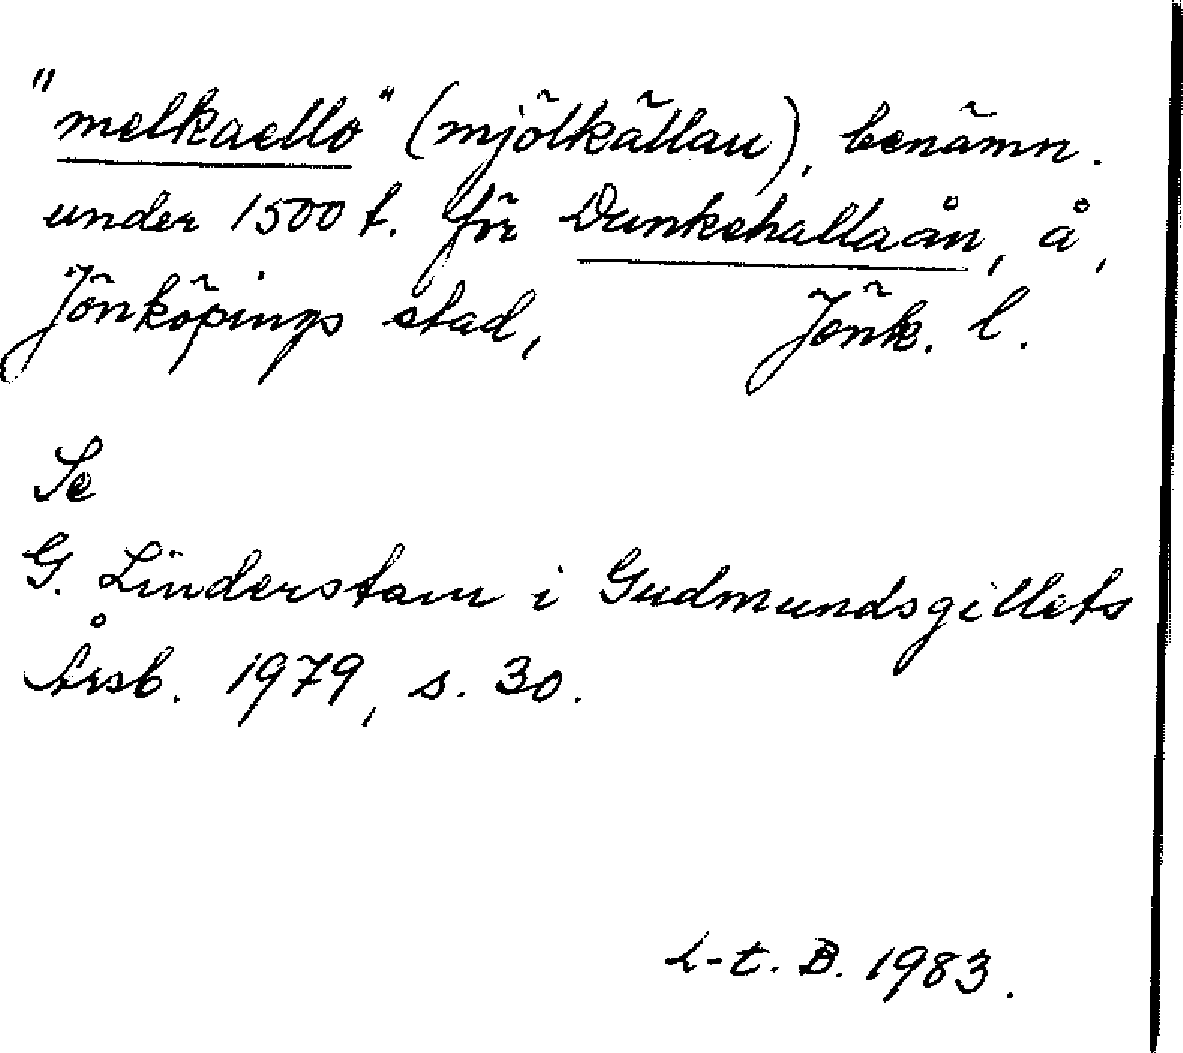 "melkaello" (mjölkkällan), benämn.
under 1500 t. för Dunkehallaån, å,
Jönköpings stad, Jönk. l.
Se
G. Linderstam i Gudmundsgillets
Årsb. 1979, s. 30.
L-t. B. 1983.